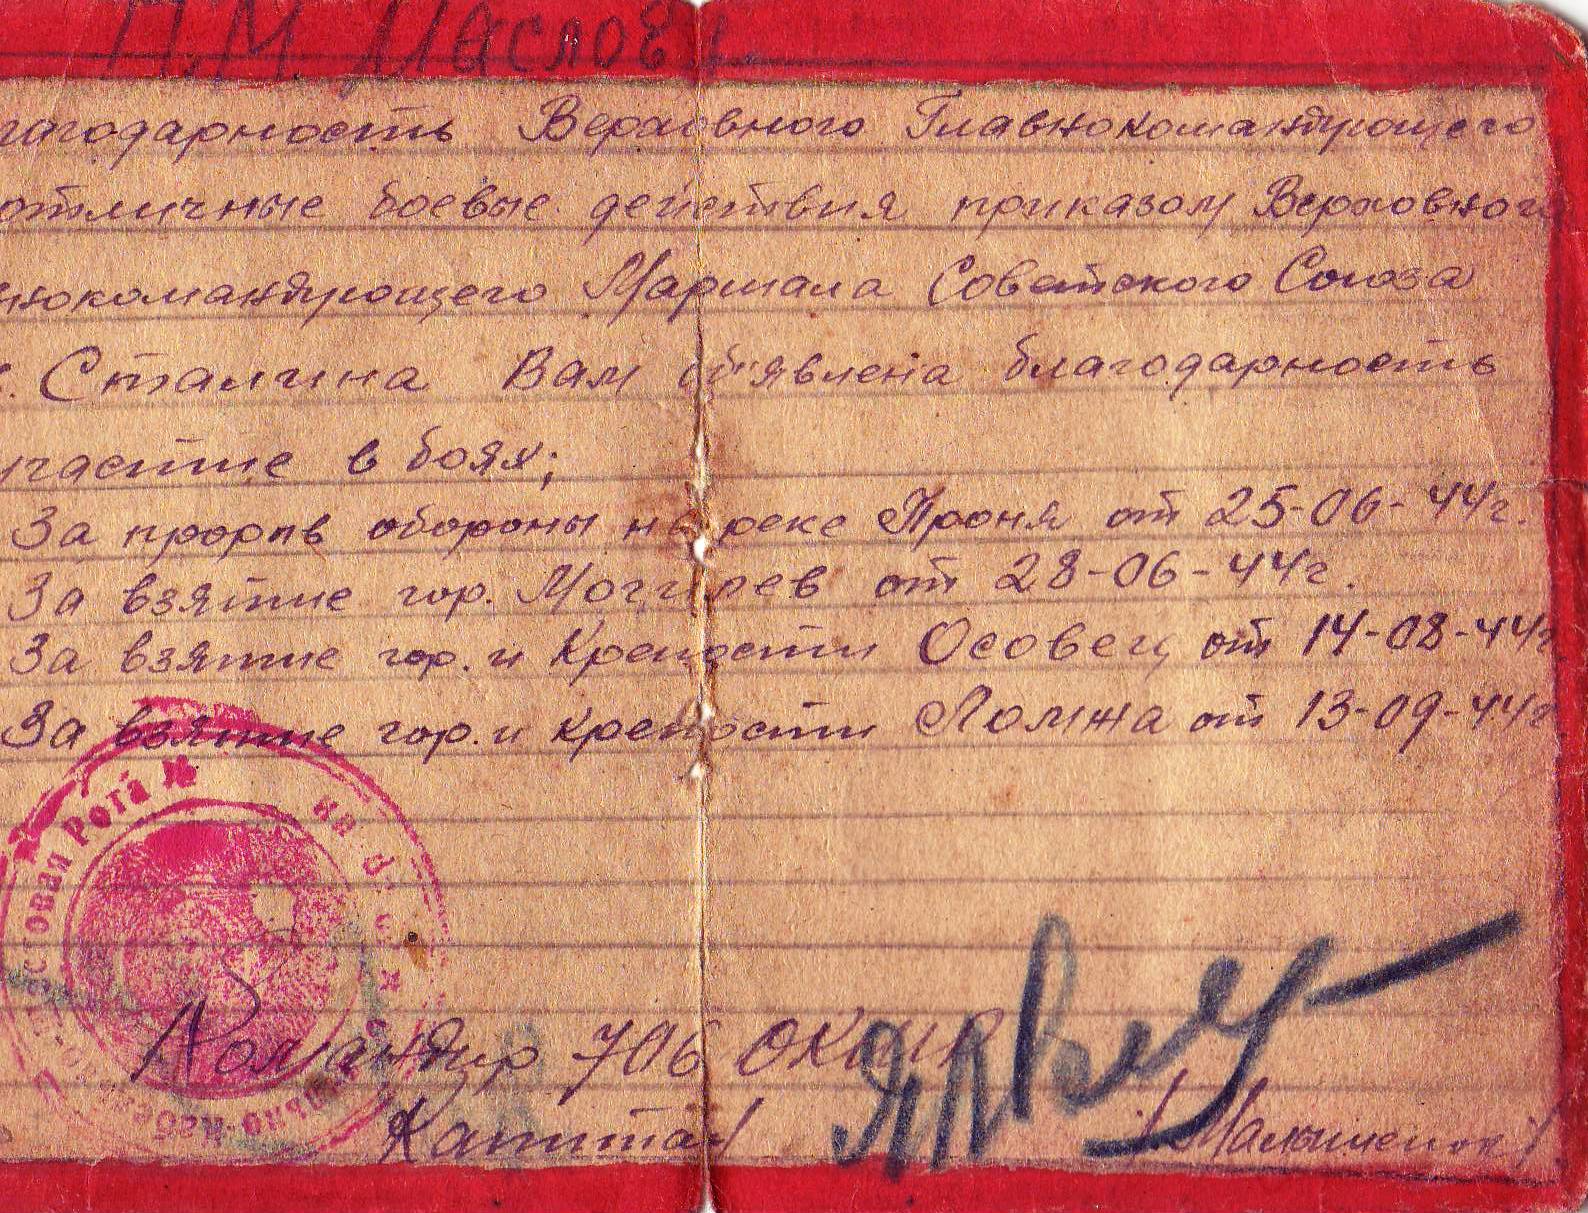 П.М. Маслов
лагодарность Верховного Главнокомандующего
отличные боевые действия приказом Верховного
нокомандующего Маршала Советского Союза
т. Сталина Вам об'явлена благодарность
участие в боях;
За прорыв обороны на реке Проня от 25-06-44г.
За взятие гор. Могилев от 28-06-44г.
За взятие гор. и Крепости Осовец от 14-08-44г
За взятие гор. и крепости Ломжа от 13-09-44г
ссовая Рота №
Командир 706 ОКШР
Капитан /Малышенок/